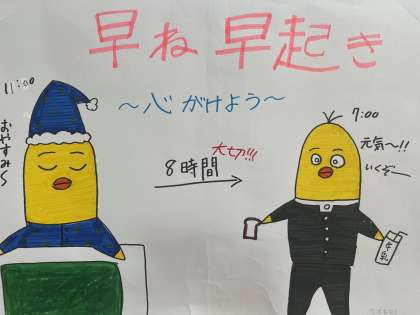 早ね 早起き
～心がけよう～
11:00
おやすみ～
8時間
大切!!!
7:00
元気～!!
いくぞー
牛乳